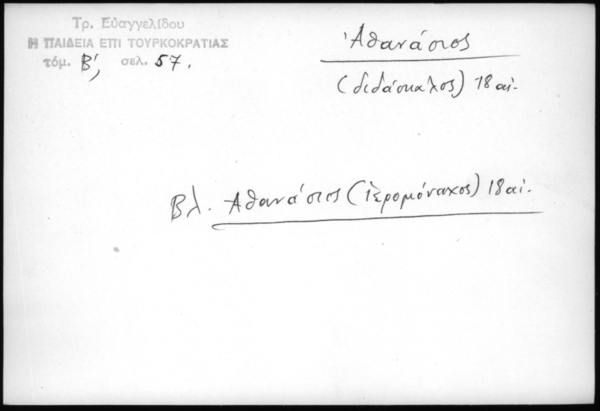 Τρ. Εὐαγγελίδου
Η ΠΑΙΔΕΙΑ ΕΠΙ ΤΟΥΡΚΟΚΡΑΤΙΑΣ
τόμ. Β', σελ. 57.
Ἀθανάσιος
(διδάσκαλος) 18 αἰ.
Βλ. Ἀθανάσιος (ἱερομόναχος) 18 αἰ.